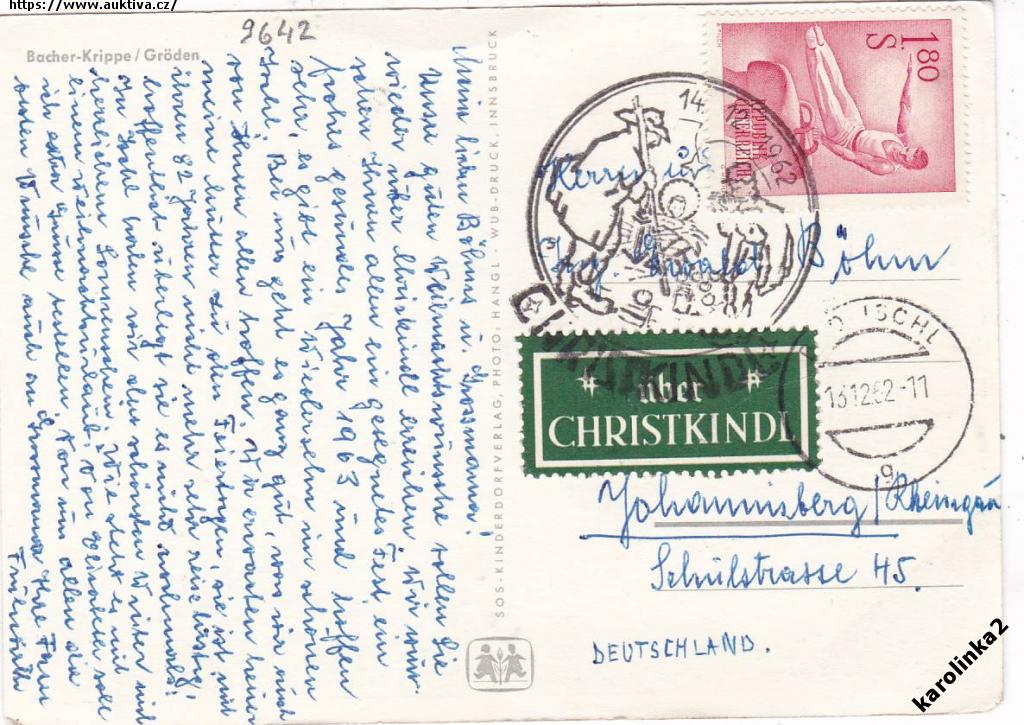 https://www.auktiva.cz/
9642
Bacher-Krippe / Gröden
Meine lieben Böhms u. Grossmama!
Unsere guten Weihnachtswünsche sollen Sie
wieder über Christkindl erreichen. Wir wün-
schen Ihnen allen ein gesegnetes Fest, ein
frohes gesundes Jahr 1963 und hoffen
sehr, es gibt ein Wiedersehen im schönen
Ischl. Bei uns geht es ganz gut, was wir auch
von Ihnen allen hoffen. Wir erwarten heuer
meine Mutter zu den Feiertagen, sie ist mit
ihren 82 Jahren nicht mehr sehr reiselustig,
hoffentlich überlegt sie es nicht nochmals.
In Ischl haben wir den schönsten Winter mit
herrlichem Sonnenschein. Wie steht es mit
einem Weihnachtsurlaub?
ich extra Grüsse bestellen. Von uns allen die
besten Wünsche auch an Grossmama Ihre Fam
SOS-KINDERDORFVERLAG, PHOTO: HANGL - WUB-DRUCK, INNSBRUCK
1.80
S
REPUBLIK
ÖSTERREICH
14.
1962
CHRISTKINDL
Herrn u.
Ing. Ewald Böhm
über
CHRISTKINDL
ISCHL
13.12.62-11
g
Johannisberg/Rheingau
Schulstrasse 45.
DEUTSCHLAND.
karolinka2